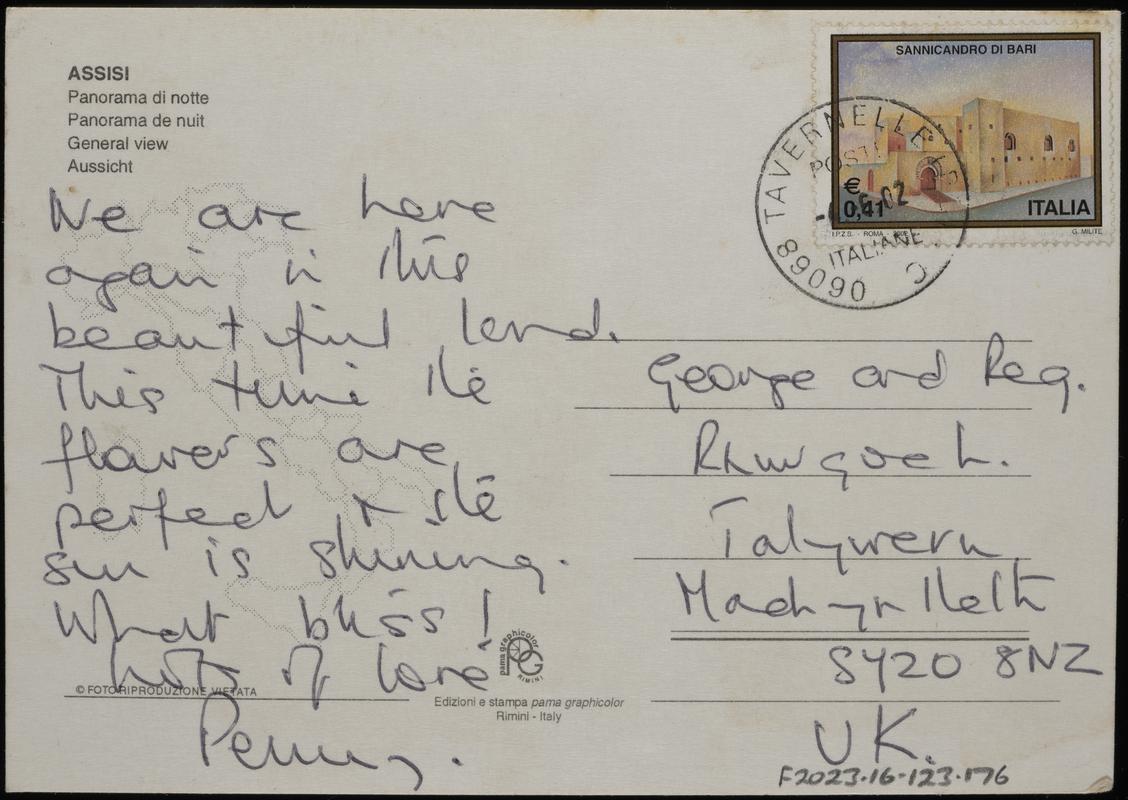 ASSISI
Panorama di notte
Panorama de nuit
General view
Aussicht
We are here
again in this
beautiful land.
This time the
flowers are
perfect & the
sun is shining.
What bliss!
Lots of love
Penny.
© FOTORIPRODUZIONE VIETATA
pama graphicolor
PG
RIMINI
Edizioni e stampa pama graphicolor
Rimini - Italy
SANNICANDRO DI BARI
€
0,41
ITALIA
I.P.Z.S. - ROMA -
G. MILITE
TAVERNELLE
POSTE
02
ITALIANE
89090
George and Reg.
Rhiwgoch.
Talywern
Machynlleth
SY20 8NZ
UK.
F2023.16.123.176